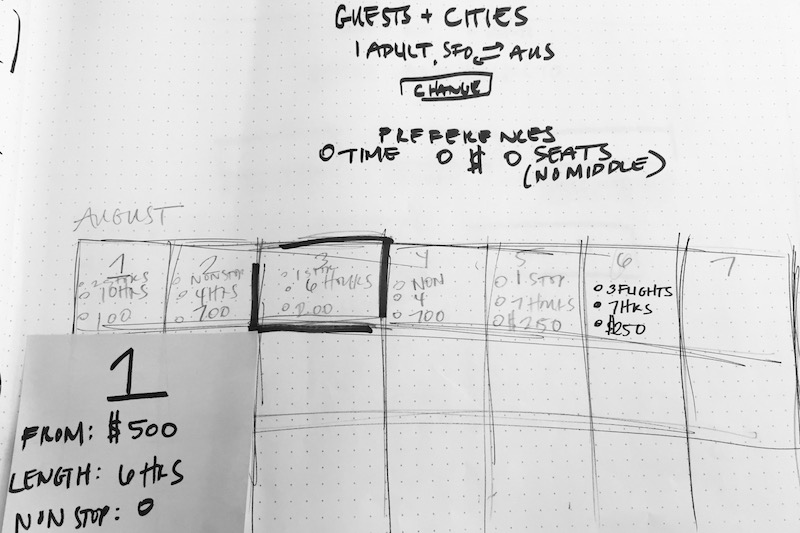 GUESTS + CITIES
1 ADULT, SFO ⇌ AUS
CHANGE
PREFERENCES
O TIME O $ O SEATS
(NO MIDDLE)
AUGUST
1
10 HRS
100
2
NONSTOP
4 HRS
700
3
1 STOP
6 HOURS
200
4
NON
4
700
5
1 STOP
7 HOURS
$250
6
3 FLIGHTS
7 HRS
$250
7
1
FROM: $500
LENGTH: 6 HRS
NON STOP: O